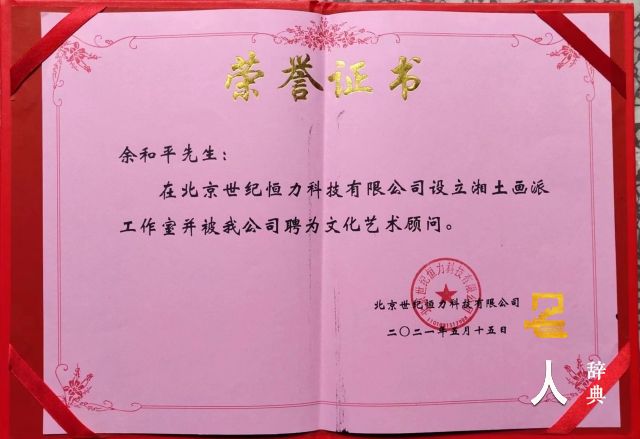 荣誉证书
余和平先生：
在北京世纪恒力科技有限公司设立湘土画派
工作室并被我公司聘为文化艺术顾问。
北京世纪恒力科技有限公司
北京世纪恒力科技有限公司
二〇二一年五月十五日
人
辞典